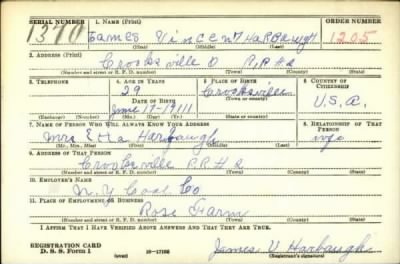 SERIAL NUMBER 1. NAME (Print) ORDER NUMBER
1370 James Vincent Harbaugh 1205
(First) (Middle) (Last)
2. ADDRESS (Print)
Crooksville O R.R #2
(Number and street or R. F. D. number) (Town) (County) (State)
3. TELEPHONE 4. AGE IN YEARS 5. PLACE OF BIRTH 6. COUNTRY OF CITIZENSHIP
29 Crooksville
DATE OF BIRTH (Town or county)
June 19-1911 U.S.A.
(Exchange) (Number) (Mo.) (Day) (Yr.) (State or country)
7. NAME OF PERSON WHO WILL ALWAYS KNOW YOUR ADDRESS 8. RELATIONSHIP OF THAT PERSON
Mrs Etta Harbaugh wife
(Mr., Mrs., Miss) (First) (Middle) (Last)
9. ADDRESS OF THAT PERSON
Crooksville R.R # 2
(Number and street or R. F. D. number) (Town) (County) (State)
10. EMPLOYER'S NAME
N.Y Coal Co
11. PLACE OF EMPLOYMENT OR BUSINESS
Rose Farm
(Number and street or R. F. D. number) (Town) (County) (State)
I AFFIRM THAT I HAVE VERIFIED ABOVE ANSWERS AND THAT THEY ARE TRUE.
REGISTRATION CARD
D. S. S. Form 1 (over) 16-17105 James V Harbaugh
(Registrant's signature)